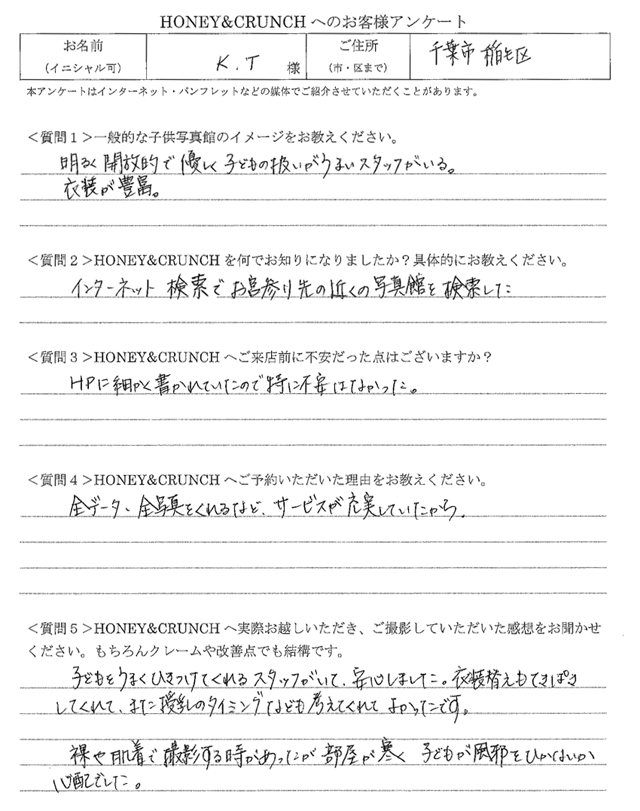 HONEY&CRUNCH へのお客様アンケート
お名前 K.T 様 ご住所 千葉市 稲毛区
(イニシャル可) (市・区まで)
本アンケートはインターネット・パンフレットなどの媒体でご紹介させていただくことがあります。
＜質問１＞一般的な子供写真館のイメージをお教えください。
明るく開放的で優しく子どもの扱いがうまいスタッフがいる。
衣装が豊富。
＜質問２＞HONEY&CRUNCH を何でお知りになりましたか？具体的にお教えください。
インターネット 検索でお宮参り先の近くの写真館を検索した
＜質問３＞HONEY&CRUNCH へご来店前に不安だった点はございますか？
HPに細かく書かれていたので特に不安はなかった。
＜質問４＞HONEY&CRUNCH へご予約いただいた理由をお教えください。
全データ、全写真をくれるなど、サービスが充実していたから。
＜質問５＞HONEY&CRUNCH へ実際お越しいただき、ご撮影していただいた感想をお聞かせ
ください。もちろんクレームや改善点でも結構です。
子どもをうまくひきつけてくれるスタッフがいて、安心しました。衣装替えもてきぱき
してくれて、また授乳のタイミングなども考えてくれてよかったです。
裸や肌着で撮影する時があったが部屋が寒く 子どもが風邪をひかないか
心配でした。